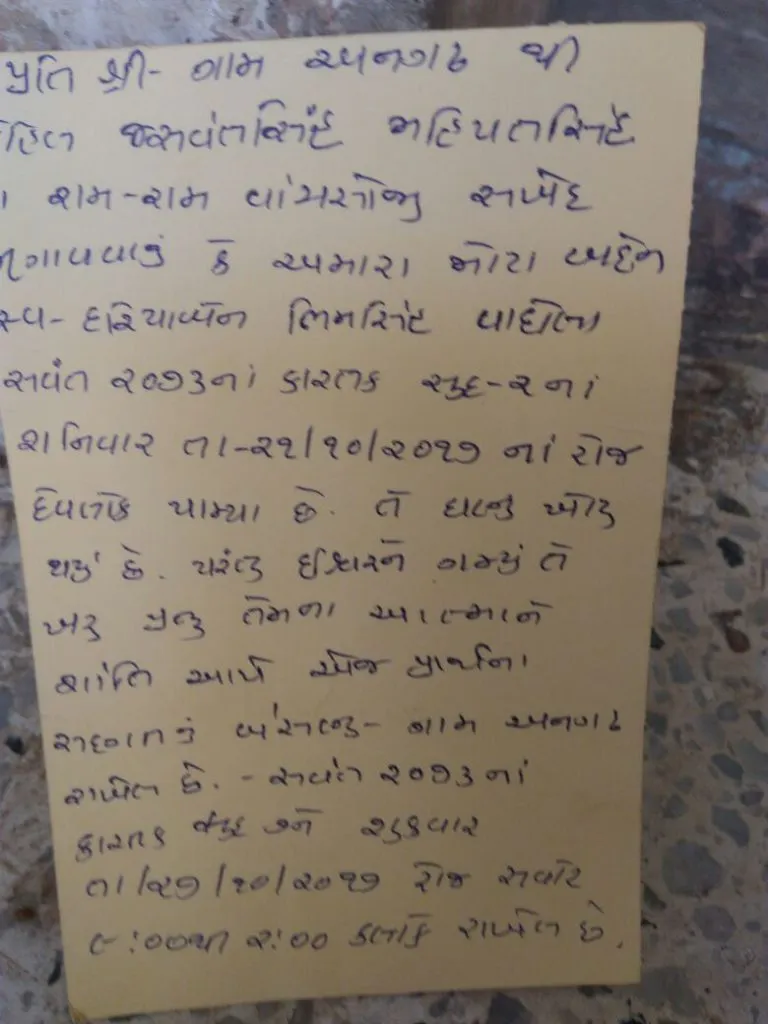 પ્રતિ શ્રી- ગામ અનગઢ થી
હિલ જસવંતસિંહ મહિપતસિંહ
રામ-રામ વાંચશોજી સખેદ
ણાવવાનું કે અમારા મોટા બહેન
સ્વ- દરિયાબેન ભિમસિંહ વાઘેલા
સવંત ૨૦૭૩નાં કારતક સુદ-૨નાં
શનિવાર તા-૨૧/૧૦/૨૦૧૭ નાં રોજ
દેવલોક પામ્યા છે. તે ઘણુ ખોટુ
થયું છે. પરંતુ ઈશ્વરને ગમ્યું તે
ખરુ પ્રભુ તેમના આત્માને
શાંતિ આપે એજ પ્રાર્થના
સદગતનું બેસણુ- ગામ અનગઢ
રાખેલ છે. - સવંત ૨૦૭૩નાં
કારતક સુદ ૭ને શુક્રવાર
તા/૨૭/૧૦/૨૦૧૭ રોજ સવારે
૯:૦૦થી ૨:૦૦ કલાકે રાખેલ છે.